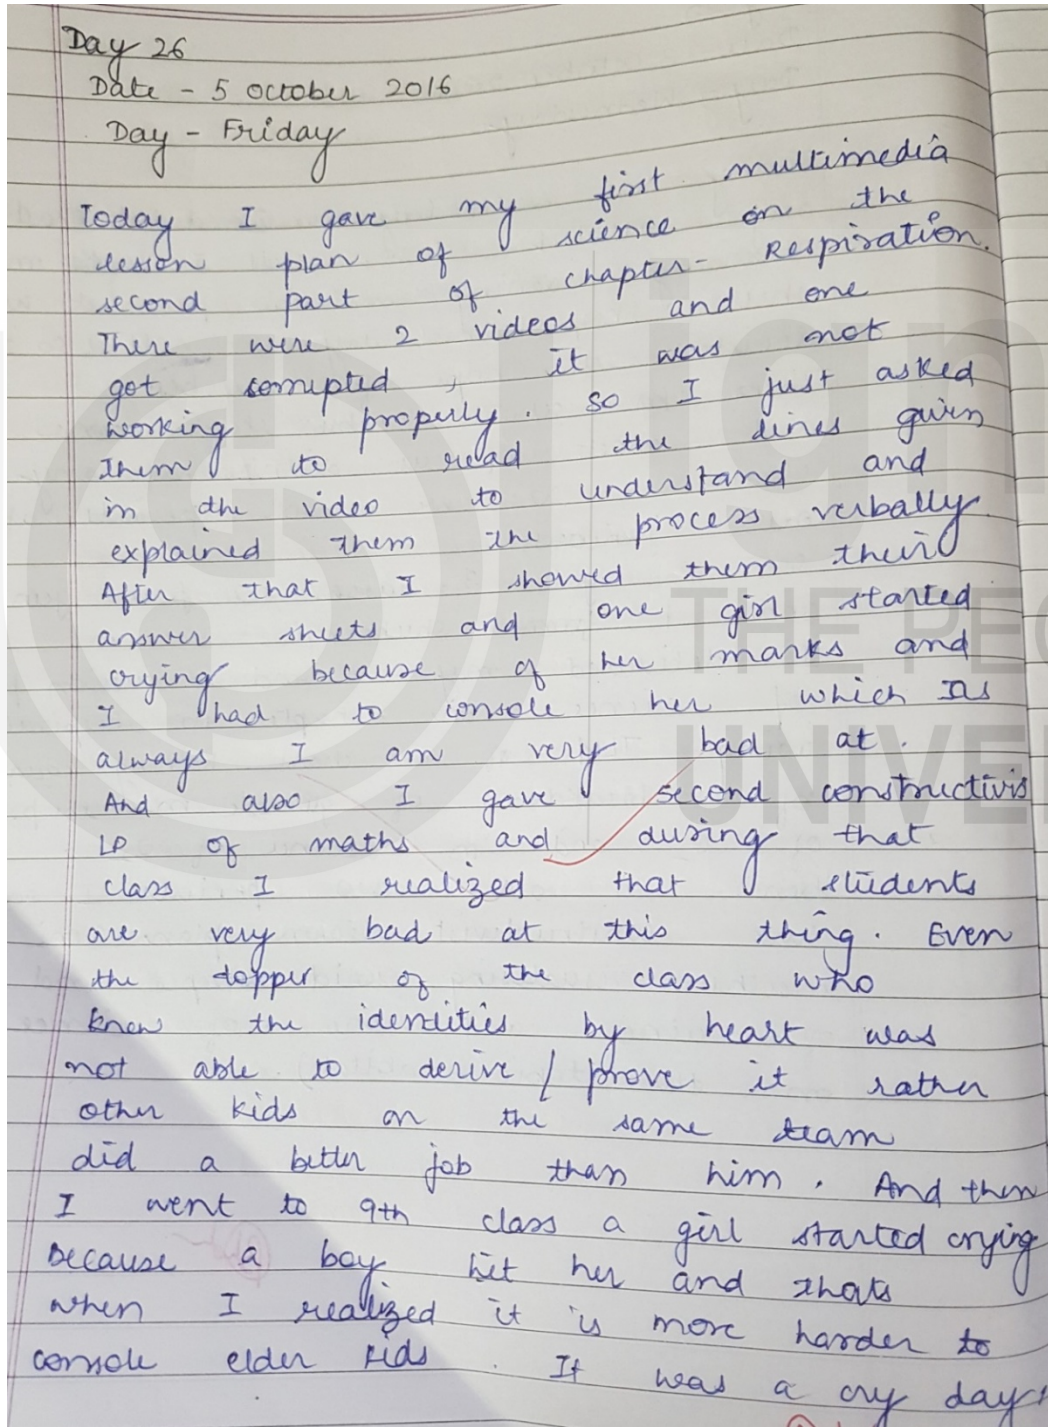 Day 26
Date - 5 October 2016
Day - Friday
Today I gave my first multimedia
lesson plan of science on the
second part of chapter - Respiration.
There were 2 videos and one
got corrupted, it was not
working properly. so I just asked
them to read the lines given
in the video to understand and
explained them the process verbally.
After that I showed them their
answer sheets and one girl started
crying because of her marks and
I had to console her which as
always I am very bad at.
And also I gave second constructivis
LP of maths and during that
class I realized that students
are very bad at this thing. Even
the topper of the class who
knew the identities by heart was
not able to derive / prove it rather
other kids on the same team
did a better job than him. And then
I went to 9th class a girl started crying
because a boy hit her and thats
when I realized it is more harder to
console elder kids. It was a cry day
THE PEO
UNIVE